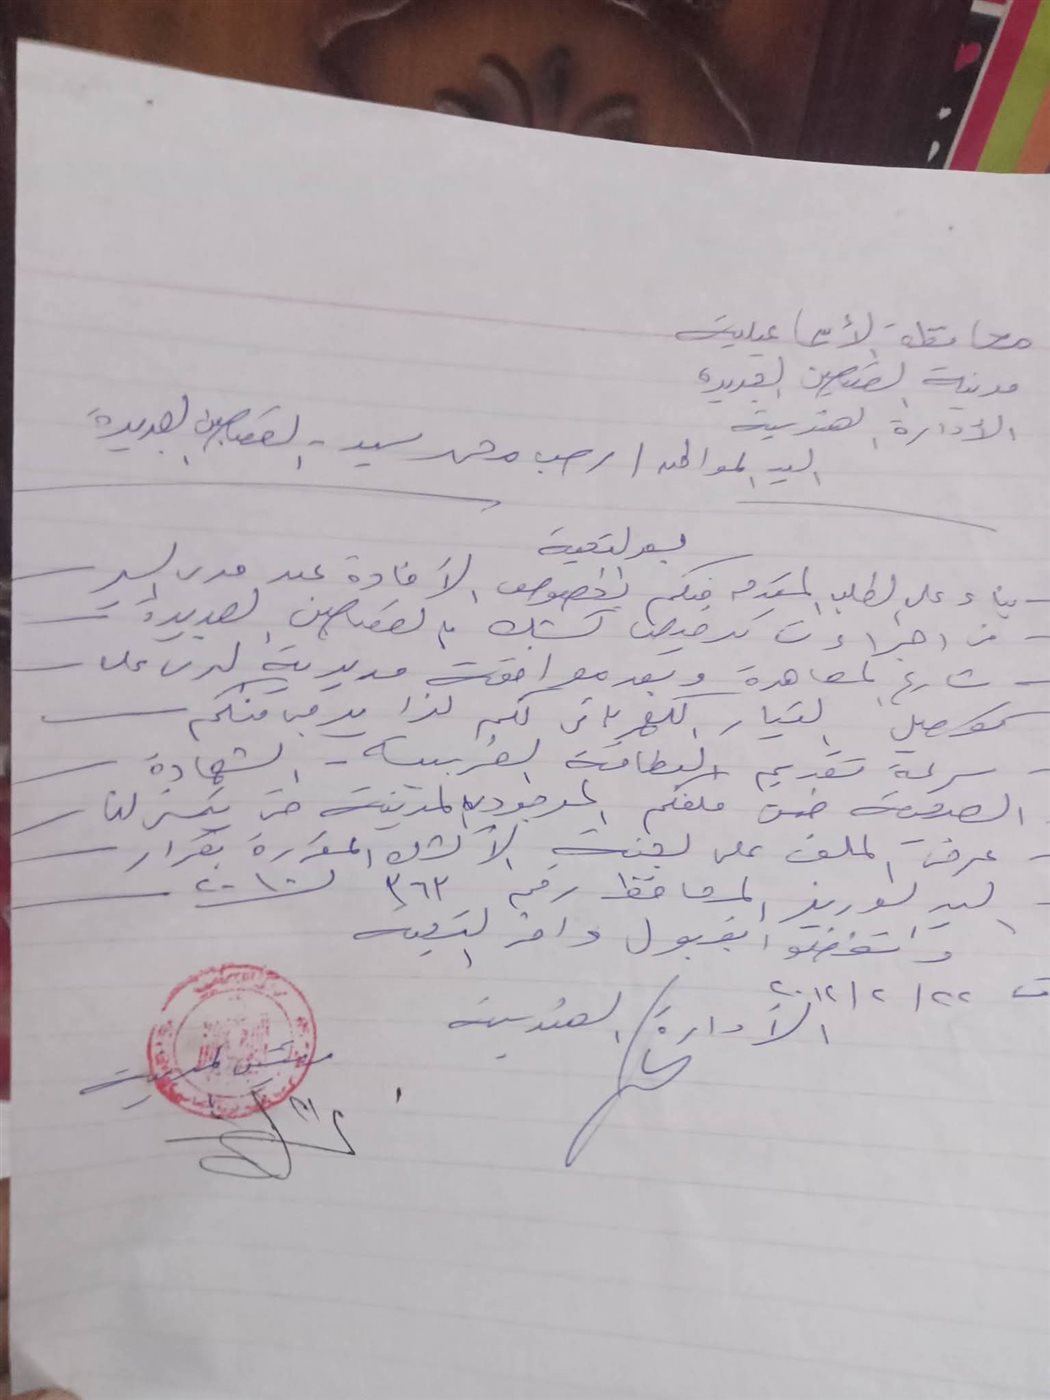 محافظة الأسماعيلية
مدينة القصاصين الجديدة
الأدارة الهندسية
السيد المواطن / رجب محمد سيد - القصاصين الجديدة
بعد التحية
بناء على الطلب المقدم منكم بخصوص الأفادة عن مدى السير
فى اجراءات ترخيص كشك بالقصاصين الجديدة
شارع المعاهدة وبعد موافقة مديرية على
توصيل التيار الكهربائى لكم لذا يرجى منكم
سرعة تقديم البطاقة الضريبية - الشهادة
الصحية ضمن ملفكم الموجود بالمدينة حتى يتسنى لنا
عرض الملف على لجنة الأكشاك المقررة بقرار
السيد الوزير المحافظ رقم ٣٦٢ لسنة
واتفضلوا بقبول وافر التحية
ت ٢٢ / ٢ / ٢٠١٢
الأدارة الهندسية
رئيس المدينة